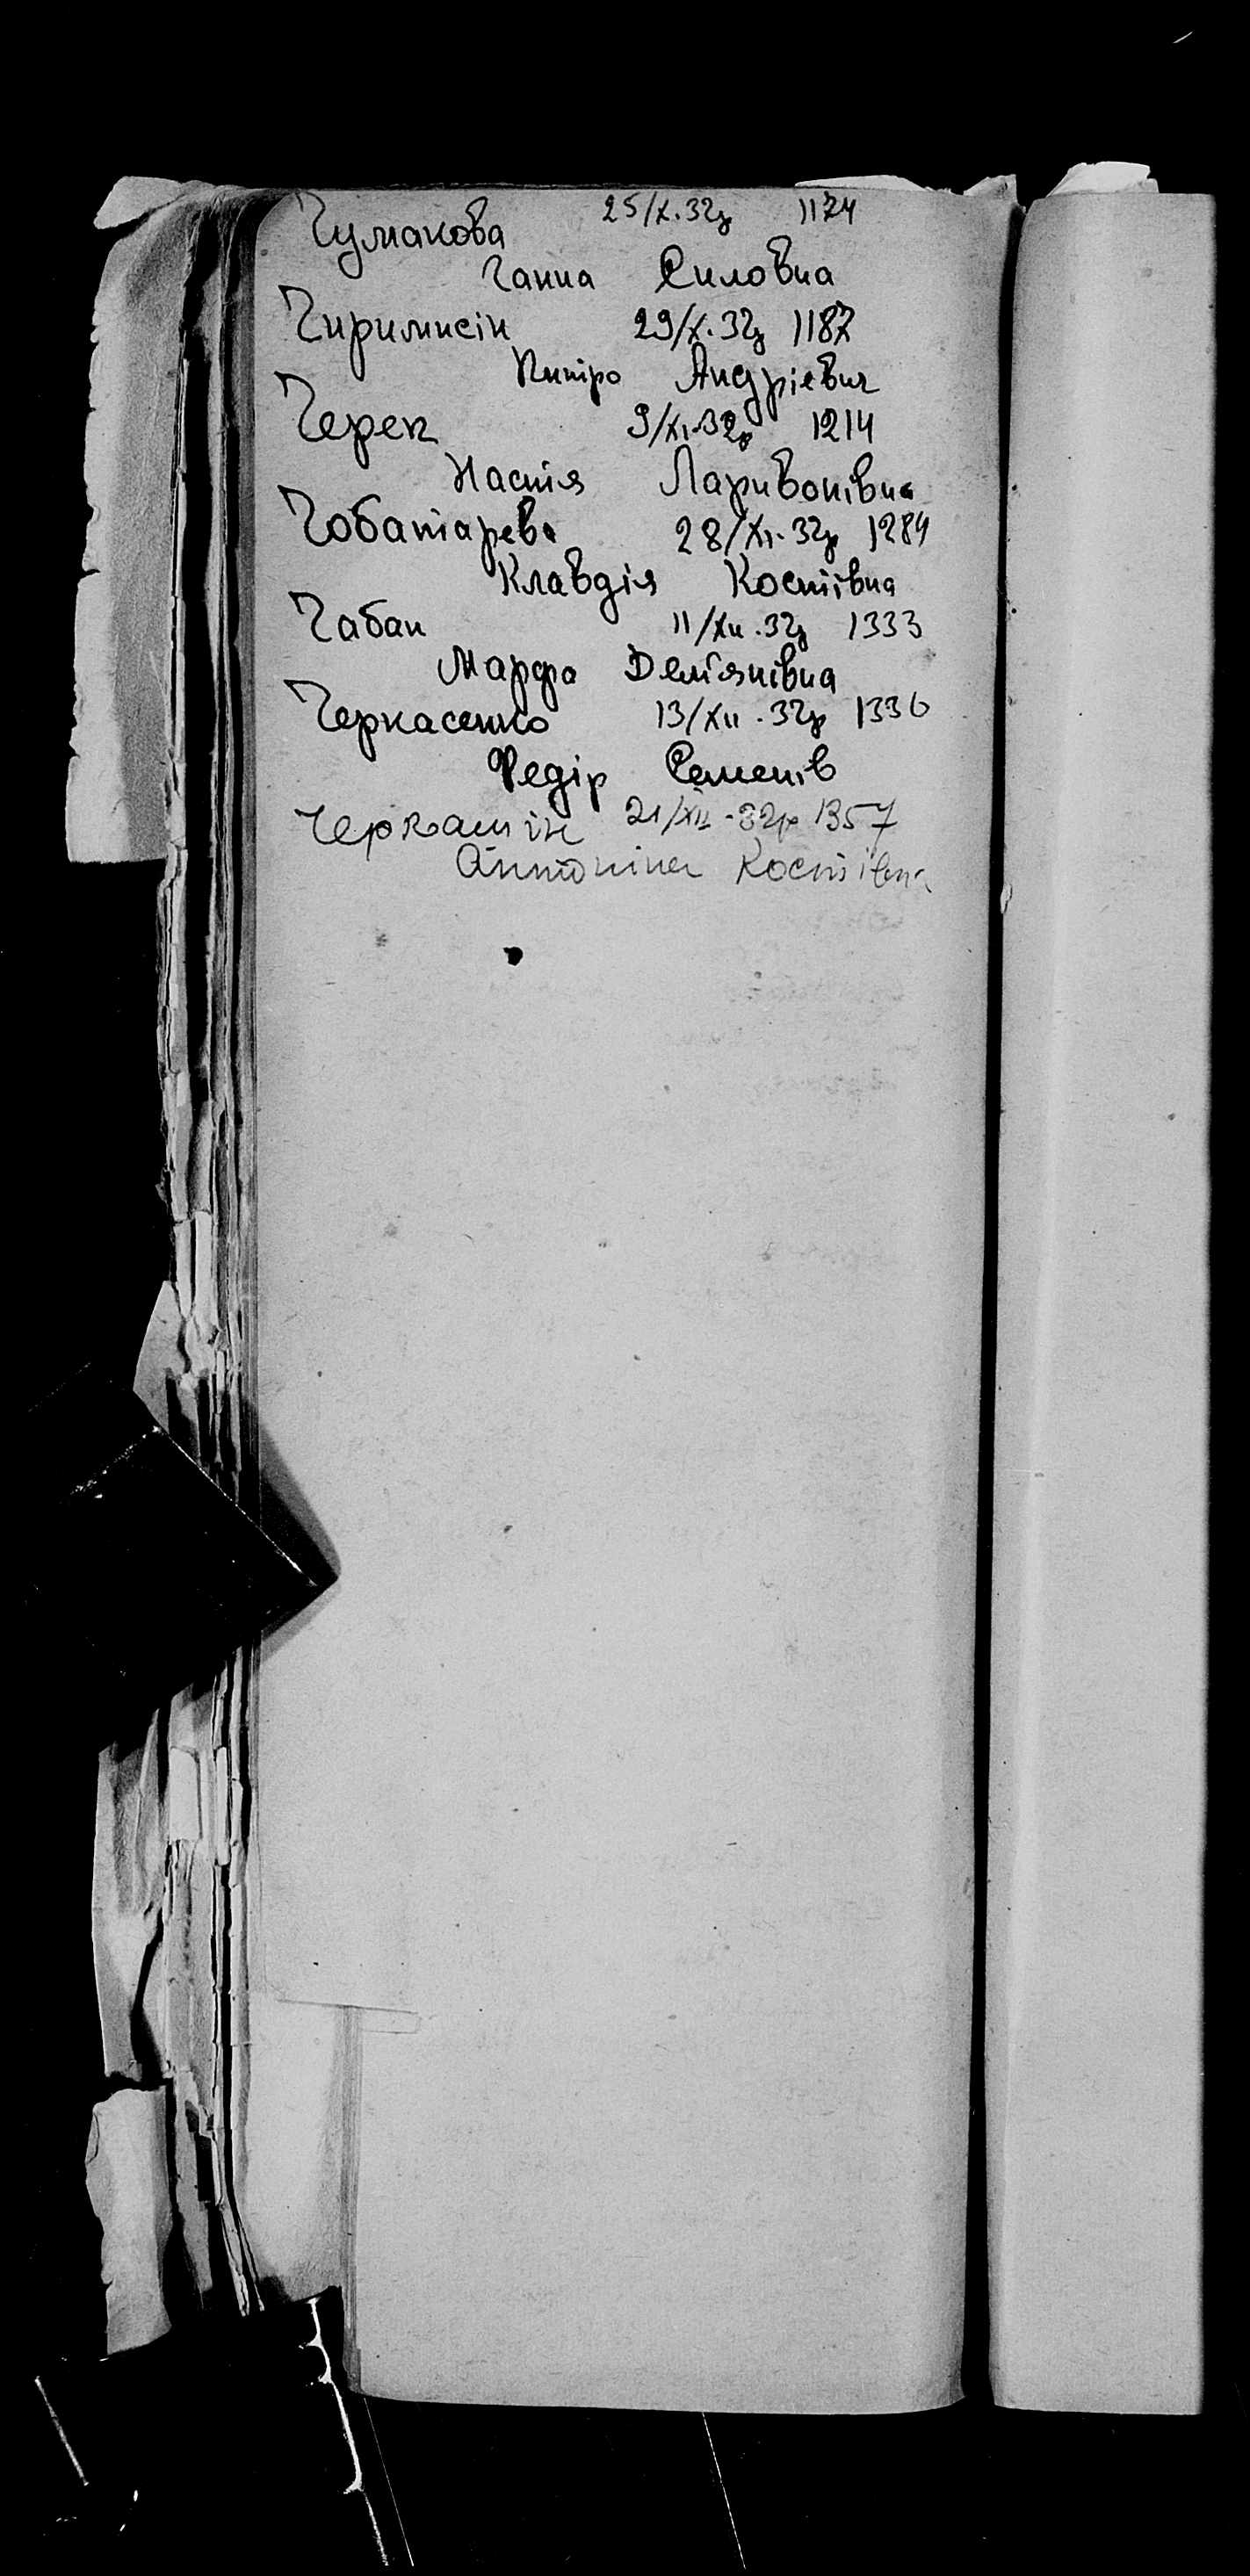 Чумакова 25/X.32р 1174
Ганна Силовна
Чиримисін 29/X.32р 1187
Дмитро Андріевич
Черек 9/XI.32р 1214
Настія Ларивонівна
Чоботарева 28/XI.32р 1284
Клавдія Костівна
Чабан 11/XII.32р 1333
Марфа Дем'янівна
Черкасенко 13/XII.32р 1336
Федір Семенів
Черкашін 21/XII-32р 1357
Антоніна Костівна